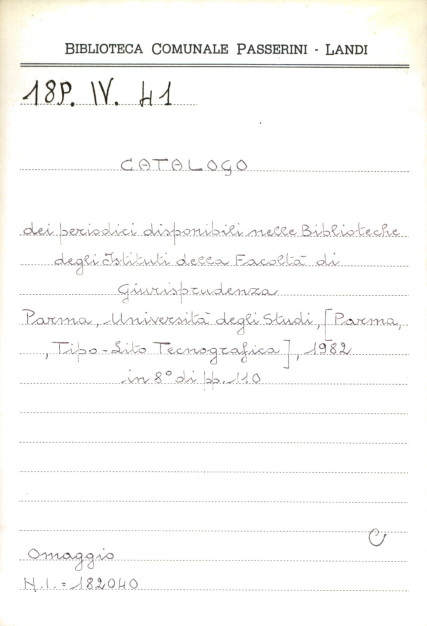 BIBLIOTECA COMUNALE PASSERINI - LANDI
18P. IV. 41
CATALOGO
dei periodici disponibili nelle Biblioteche
degli Istituti della Facoltà di
Giurisprudenza
Parma, Università degli Studi, [Parma,
, Tipo-Lito Tecnografica], 1982
in 8° di pp. 110
C
Omaggio
N.I. = 182040